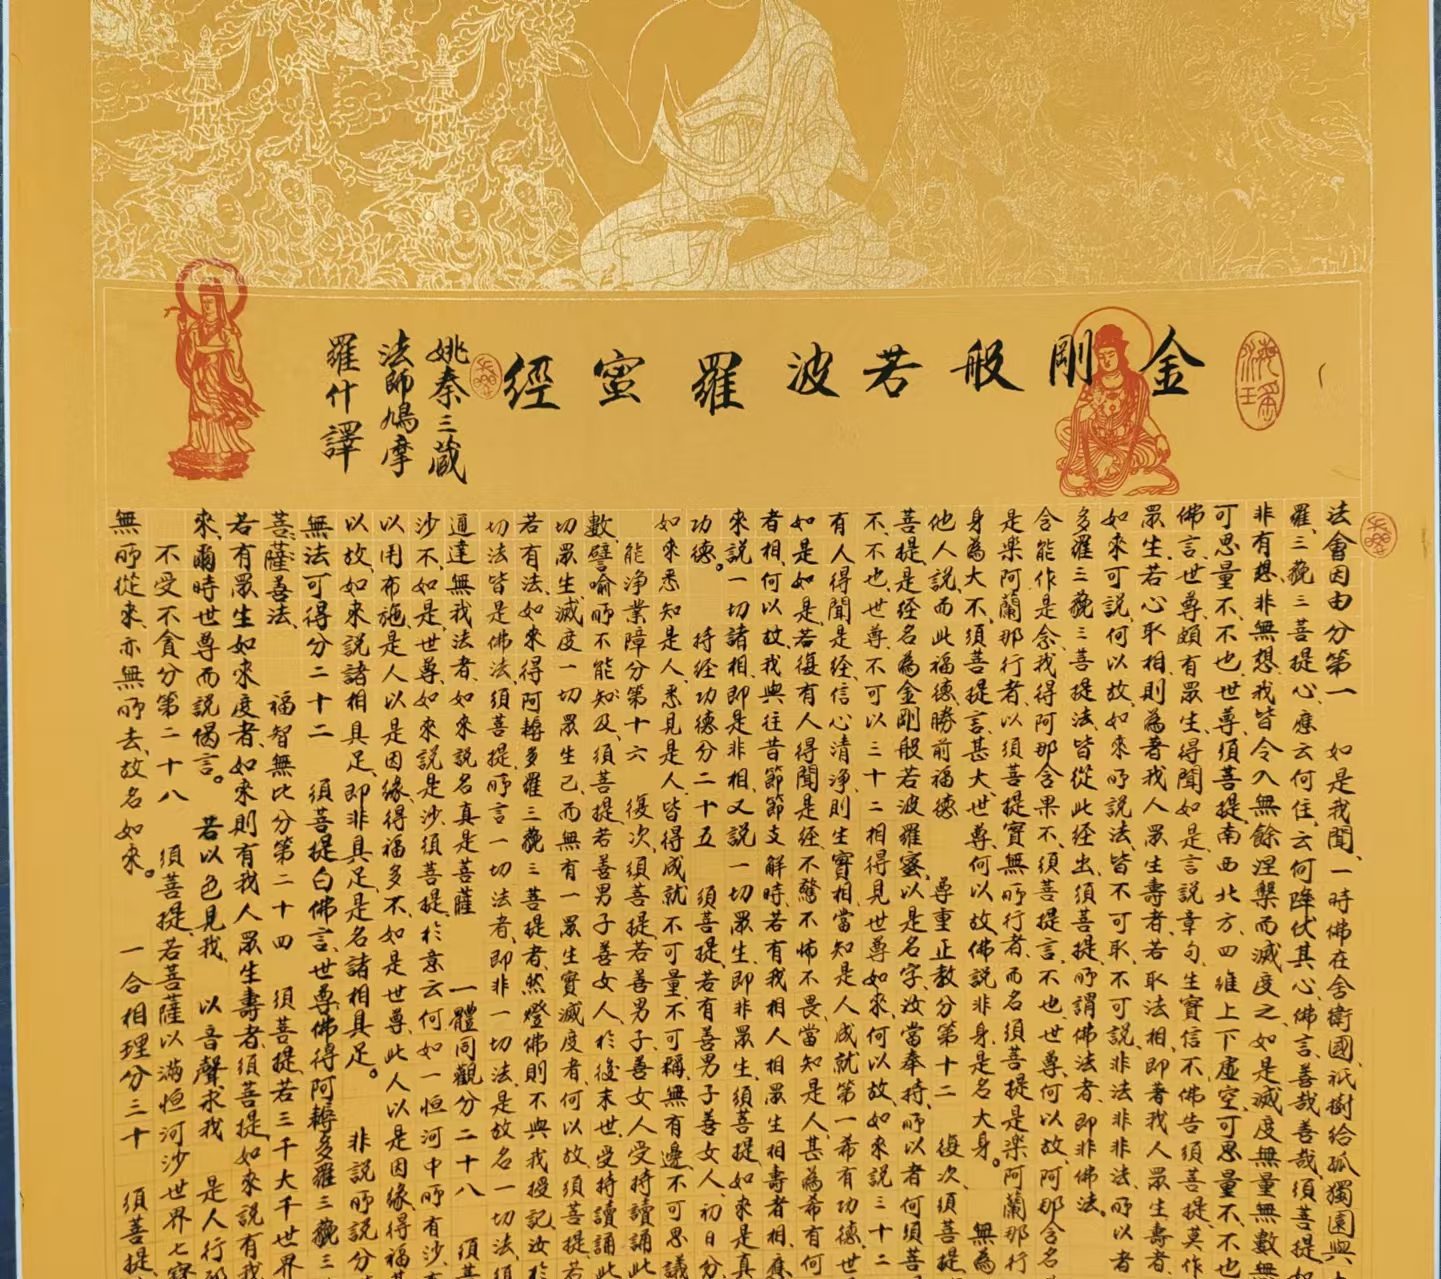 金剛般若波羅蜜經
姚秦三藏
法師鳩摩
羅什譯
法會因由分第一 如是我聞、一時佛在舍衛國、祇樹給孤獨園與
羅、三藐三菩提心、應云何住、云何降伏其心、佛言、善哉善哉、須菩提、如
非有想、非無想、我皆令入無餘涅槃而滅度之、如是滅度無量無數無
可思量不、不也、世尊、須菩提、南西北方、四維上下虛空、可思量不、不也
佛言、世尊、頗有眾生、得聞如是言說章句、生實信不、佛告須菩提、莫作
眾生、若心取相、則為著我人眾生壽者、若取法相、即著我人眾生壽者、
如來可說、何以故、如來所說法、皆不可取、不可說、非法、非非法、所以者
多羅三藐三菩提法、皆從此經出、須菩提、所謂佛法者、即非佛法。
含能作是念、我得阿那含果不、須菩提言、不也、世尊、何以故、阿那含名
是樂阿蘭那行者、以須菩提實無所行者、而名須菩提、是樂阿蘭那行
身為大不、須菩提言、甚大、世尊、何以故、佛說非身、是名大身。 無為
他人說、而此福德、勝前福德 尊重正教分第十二 復次、須菩提、
菩提、是經名為金剛般若波羅蜜、以是名字、汝當奉持、所以者何、須菩
不、不也、世尊、不可以三十二相得見世尊如來、何以故、如來說三十二
有人得聞是經、信心清淨、則生實相、當知是人、成就第一希有功德、世
如是如是、若復有人、得聞是經、不驚不怖不畏、當知是人、甚為希有、何
者相、何以故、我與往昔節節支解時、若有我相人相眾生相壽者相、應
來說一切諸相、即是非相、又說一切眾生、即非眾生、須菩提、如來是真
功德。 持經功德分二十五 須菩提、若有善男子善女人、初日分
如來悉知是人、悉見是人、皆得成就不可量、不可稱、無有邊、不可思議
能淨業障分第十六 復次、須菩提、若善男子善女人、受持讀誦此
數、譬喻所不能知及、須菩提、若善男子善女人、於後末世、受持讀誦此
切眾生、滅度一切眾生已、而無有一眾生實滅度者、何以故、須菩提、若
若有法、如來得阿耨多羅三藐三菩提者、然燈佛則不與我授記、汝於
切法皆是佛法、須菩提、所言一切法者、即非一切法、是故名一切法、須
通達無我法者、如來說名真是菩薩 一體同觀分二十八 須菩
沙不、如是、世尊、如來說是沙、須菩提、於意云何、如一恒河中所有沙、有
以用布施、是人以是因緣、得福多不、如是、世尊、此人以是因緣、得福甚
以故、如來說諸相具足、即非具足、是名諸相具足。 非說所說分
無法可得分二十二 須菩提白佛言、世尊、佛得阿耨多羅三藐三
菩、薩善法、 福智無比分第二十四 須菩提、若三千大千世界
若有眾生如來度者、如來則有我人眾生壽者、須菩提、如來說有我
來、爾時世尊而說偈言。 若以色見我、 以音聲求我 是人行邪
不受不貪分第二十八 須菩提、若菩薩以滿恒河沙世界七寶
無所從來、亦無所去、故名如來。 一合相理分三十 須菩提、